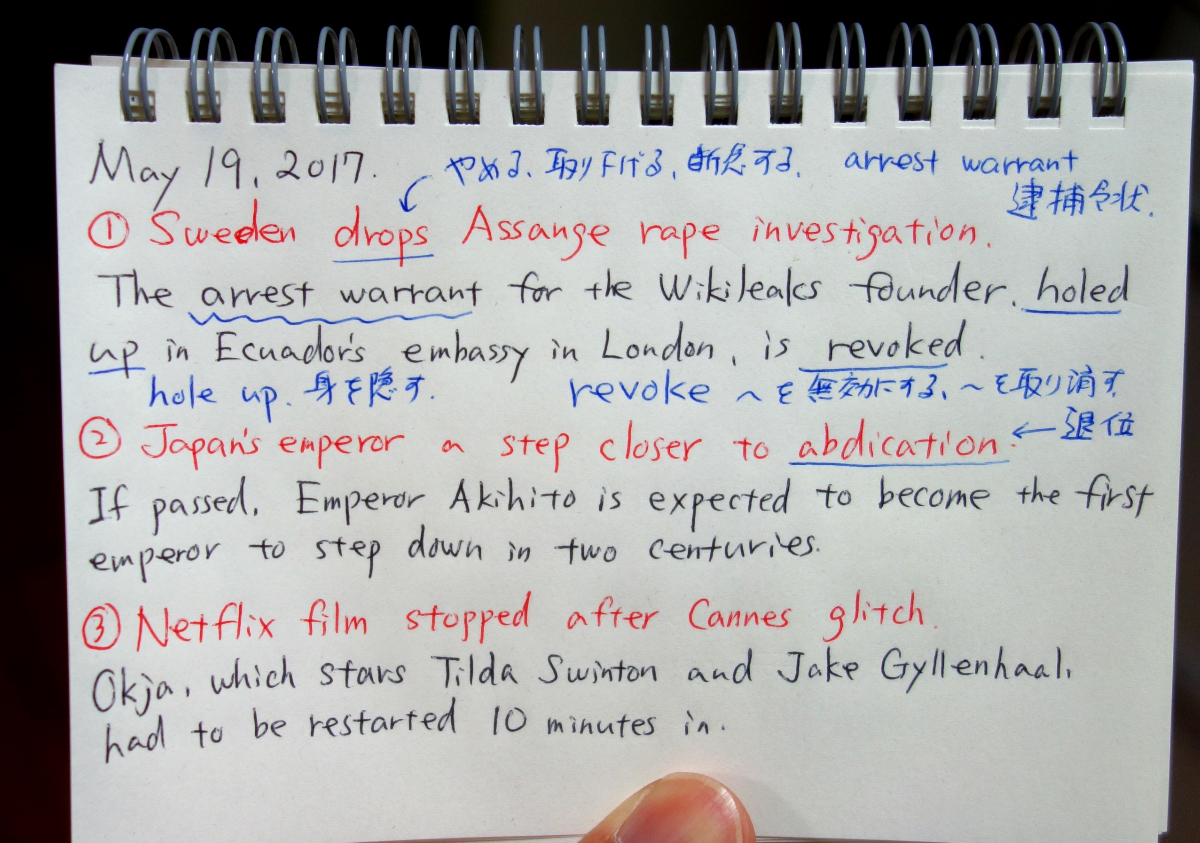 May 19, 2017. やめる、取り下げる、断念する. arrest warrant
逮捕令状.
① Sweden drops Assange rape investigation.
The arrest warrant for the Wikileaks founder, holed
up in Ecuador's embassy in London, is revoked.
hole up. 身を隠す. revoke ~を無効にする、~を取り消す
② Japan's emperor a step closer to abdication. ←退位
If passed, Emperor Akihito is expected to become the first
emperor to step down in two centuries.
③ Netflix film stopped after Cannes glitch.
Okja, which stars Tilda Swinton and Jake Gyllenhaal,
had to be restarted 10 minutes in.